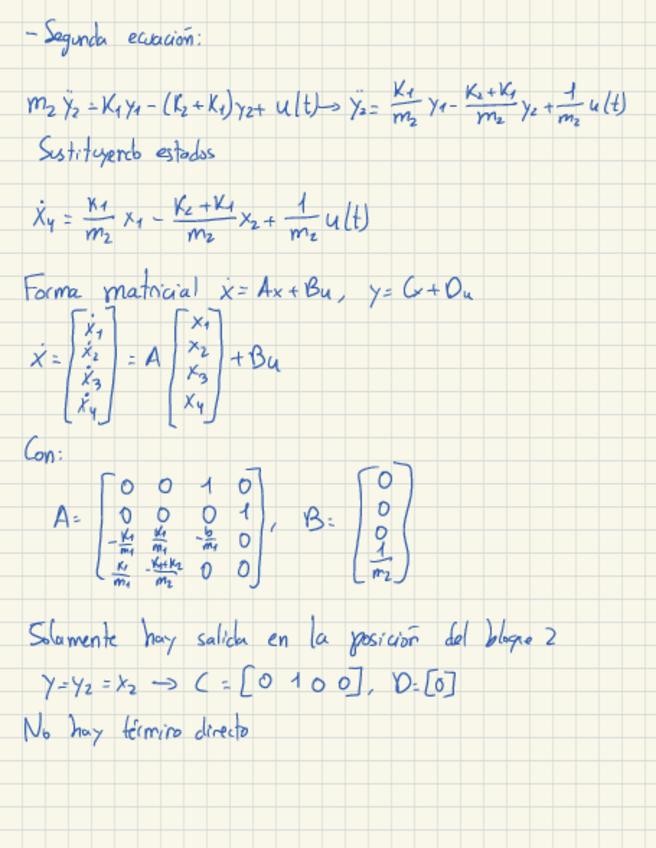 - Segunda ecuación:
m₂ ÿ₂ = K₁y₁ - (K₂+K₁)y₂ + u(t) → ÿ₂ = K₁/m₂ y₁ - K₂+K₁/m₂ y₂ + 1/m₂ u(t)
Sustituyendo estados
ẋ₄ = K₁/m₂ x₁ - K₂+K₁/m₂ x₂ + 1/m₂ u(t)
Forma matricial ẋ = Ax + Bu, y = Cx + Du
ẋ = [ẋ₁ ẋ₂ ẋ₃ ẋ₄] = A [x₁ x₂ x₃ x₄] + Bu
Con:
A = [0 0 1 0
0 0 0 1
-K₁/m₁ K₁/m₁ -b/m₁ 0
K₁/m₁ -K₁+K₂/m₂ 0 0], B = [0 0 0 1/m₂]
Solamente hay salida en la posición del bloque 2
y = y₂ = x₂ → C = [0 1 0 0], D = [0]
No hay término directo